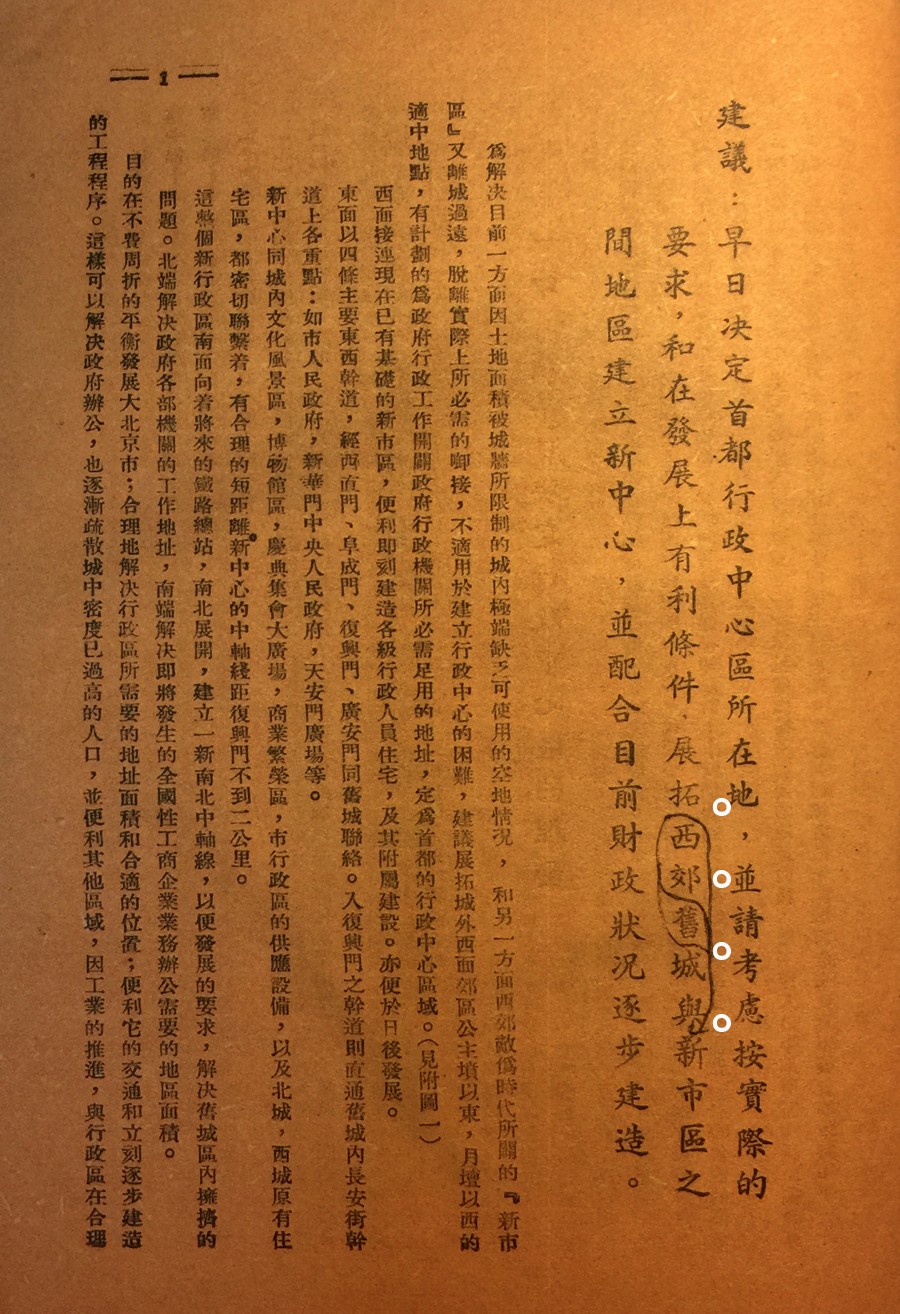 建議：早日决定首都行政中心區所在地，並請考慮按實際的
要求，和在發展上有利條件，展拓西郊舊城與新市區之
間地區建立新中心，並配合目前財政狀况逐步建造。
爲解决目前一方面因土地面積被城牆所限制的城內極端缺乏可使用的空地情况，和另一方面西郊敵僞時代所闢的『新市
區』又離城過遠，脫離實際上所必需的啣接，不適用於建立行政中心的困難，建議展拓城外西面郊區公主墳以東，月壇以西的
適中地點，有計劃的爲政府行政工作開闢政府行政機關所必需足用的地址，定爲首都的行政中心區域。（見附圖一）
西面接連現在已有基礎的新市區，便利即刻建造各級行政人員住宅，及其附屬建設。亦便於日後發展。
東面以四條主要東西幹道，經西直門、阜成門、復興門、廣安門同舊城聯絡。入復興門之幹道則直通舊城內長安街幹
道上各重點：如市人民政府，新華門中央人民政府，天安門廣場等。
新中心同城內文化風景區，博物館區，慶典集會大廣場，商業繁榮區，市行政區的供應設備，以及北城，西城原有住
宅區，都密切聯繫着，有合理的短距離。新中心的中軸綫距復興門不到二公里。
這整個新行政區南面向着將來的鐵路總站，南北展開，建立一新南北中軸線，以便發展的要求，解决舊城區內擁擠的
問題。北端解决政府各部機關的工作地址，南端解决即將發生的全國性工商企業業務辦公需要的地區面積。
目的在不費周折的平衡發展大北京市；合理地解决行政區所需要的地址面積和合適的位置；便利它的交通和立刻逐步建造
的工程程序。這樣可以解决政府辦公，也逐漸疏散城中密度已過高的人口，並便利其他區域，因工業的推進，與行政區在合理
1